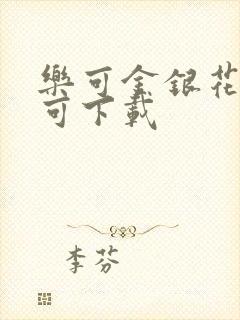 樂可金銀花
可下載
李芬